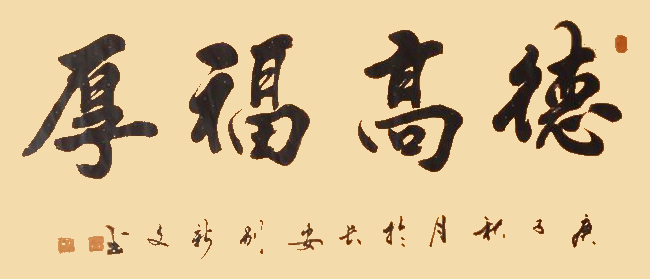 德高福厚
庚子秋月於长安刘新文书